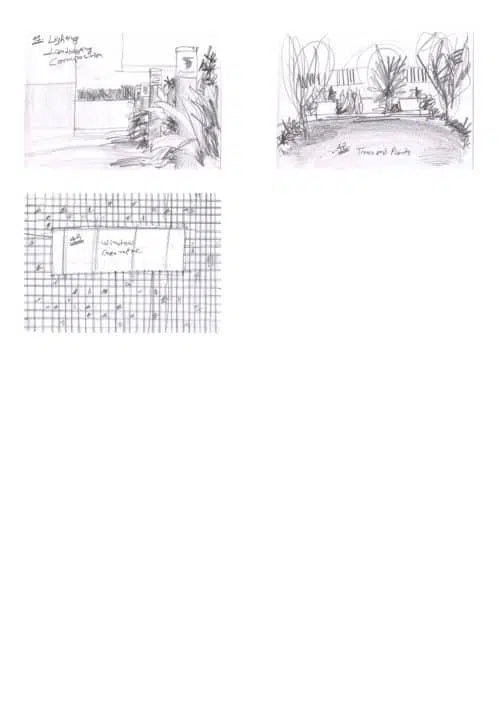 Lighting
Landscaping
Composition
Trees and Plants
Window
Geometric